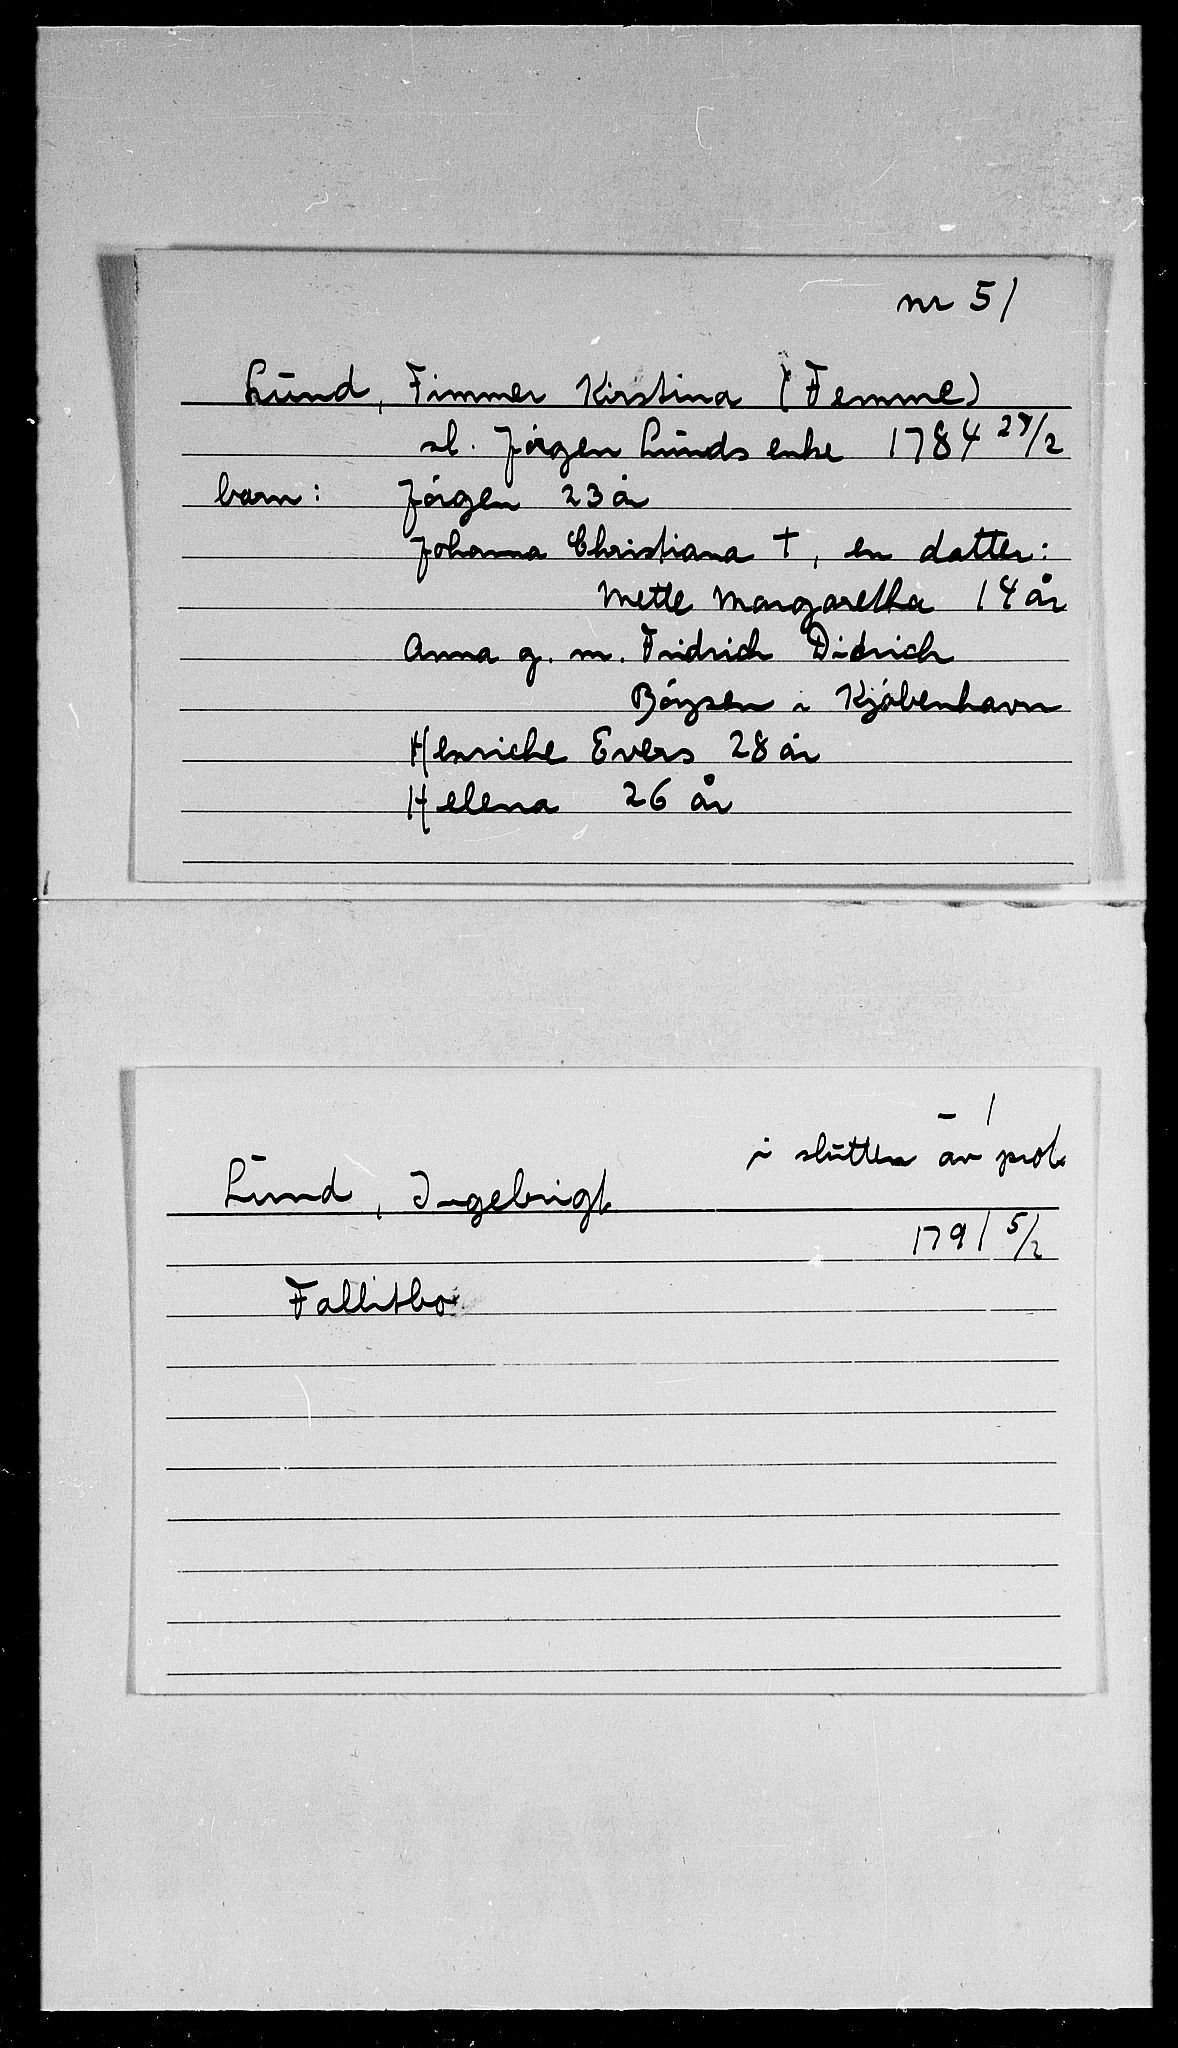 nr 51
Lund, Fimmer Kirstina (Femme)
sl. Jörgen Lunds enke 1784 27/2
barn: Jörgen 23 år
Johanna Christiana †, en datter:
Mette Margaretha 14 år
Anna g. m. Fridrich Didrich
Böysen i Kjöbenhavn
Henriche Evers 28 år
Helena 26 år
- 1
i slutten av prot.
Lund, Ingebrigt
1791 5/2
Fallitbo.